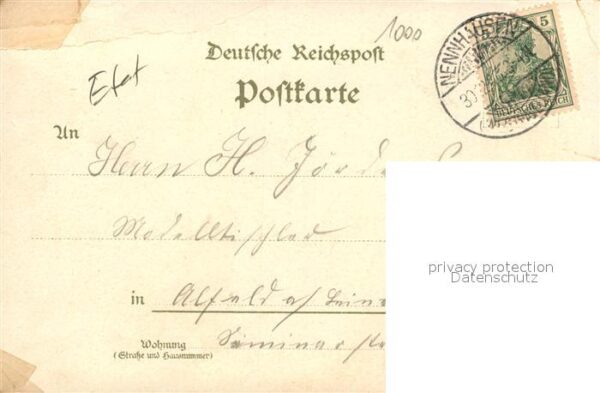 1000
Deutsche Reichspost
Postkarte
NENNHAUSEN
30
5
DEUTSCHES REICH
An
Herrn H.
Modelltischler
in Alfeld a/ Leine
Wohnung
(Straße und Hausnummer)
Seminarstr
privacy protection
Datenschutz